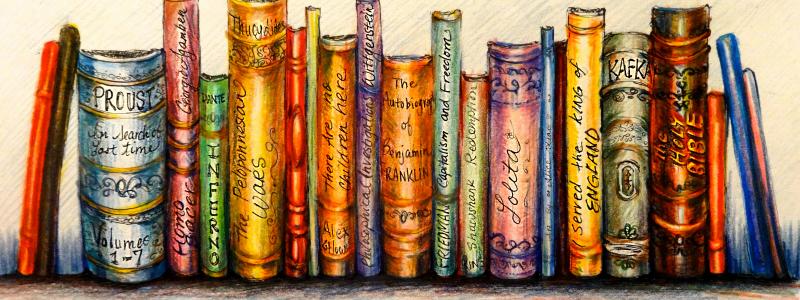 PROUST
In Search of
Lost time
Volumes
1-7
Giorgio Agamben
Homo
Sacer
DANTE
INFERNO
Thucydides
The Peloponnesian
Wars
There Are no
Children here
Alex
Wittgenstein
Philosophical Investigations
The
Autobiography
of
Benjamin
FRANKLIN
Capitalism and Freedom
FRIEDMAN
Shawshank Redemption
Lolita
I Served the KING of
ENGLAND
KAFKA
The Holy
BIBLE